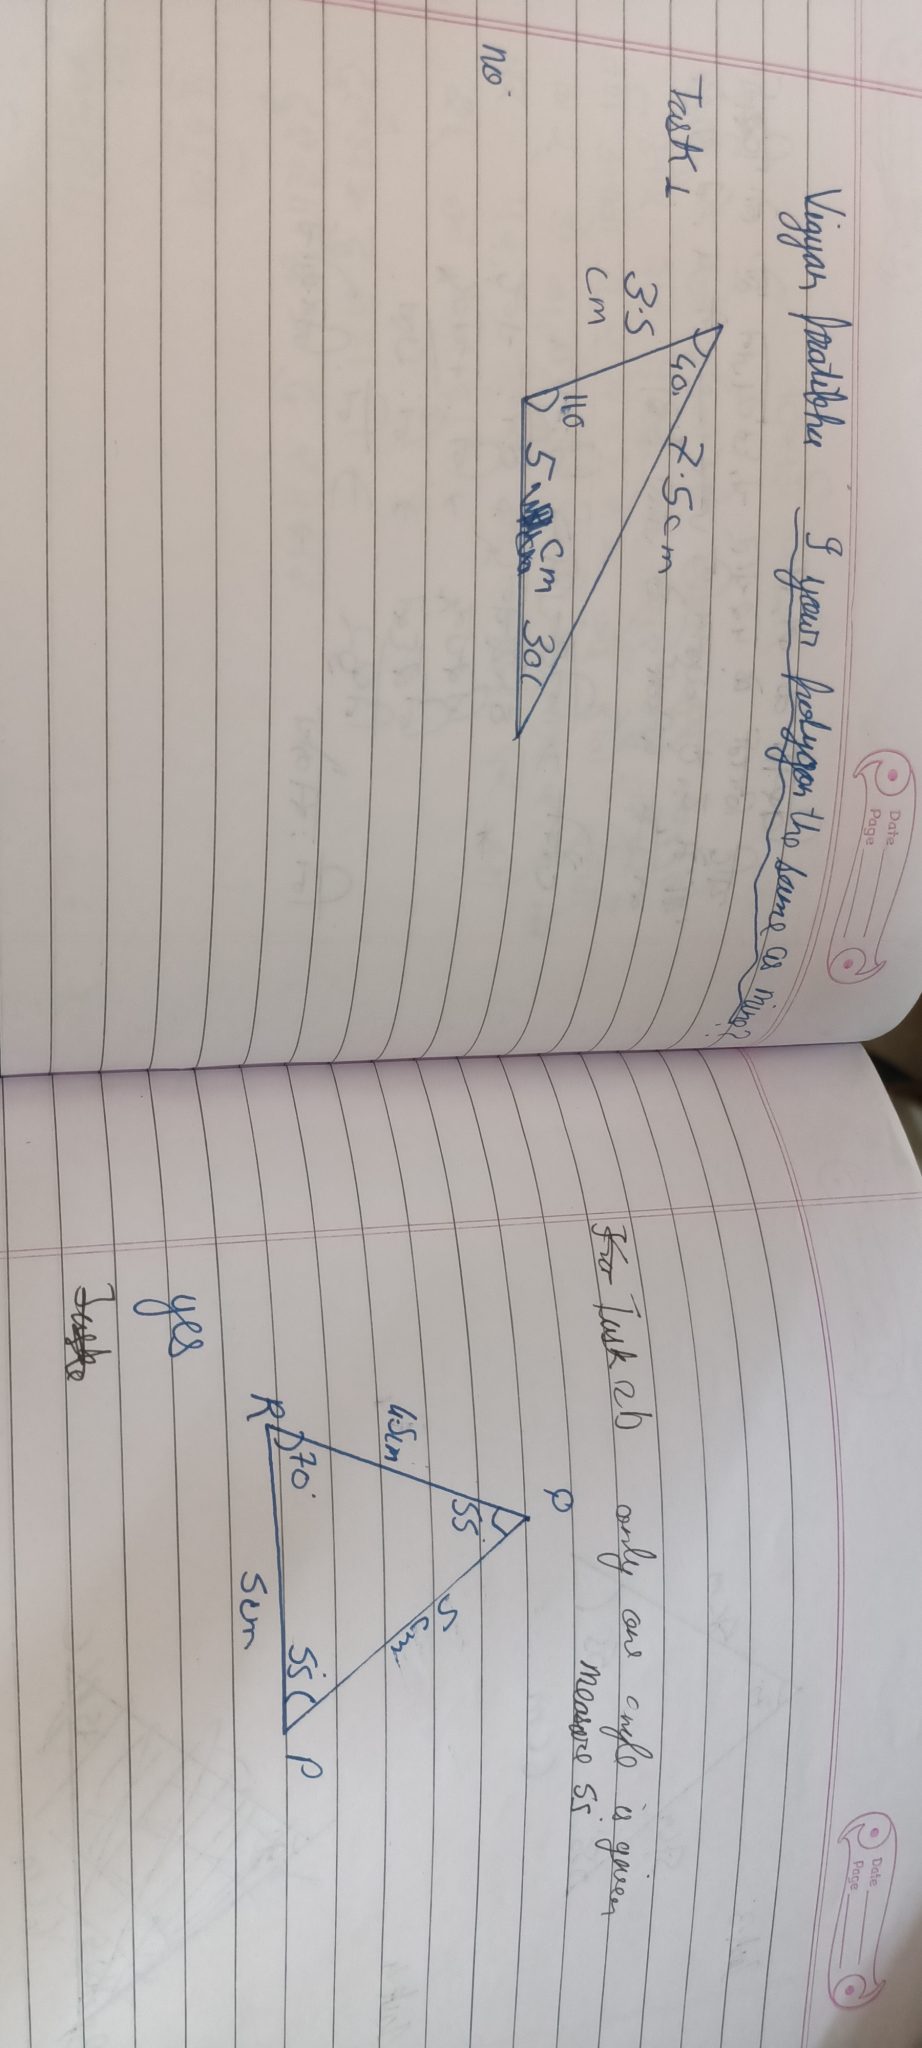 Date
Page
Vigyan Pratibha I your polygon the same as mine?
Task 1
40° 7.5cm
3.5
cm
110
5 cm 30
no.
Date
Page
For Task 2b only one angle is given
measure 55°
55°
4.5cm
5
cm
R 70° 55° P
5cm
yes